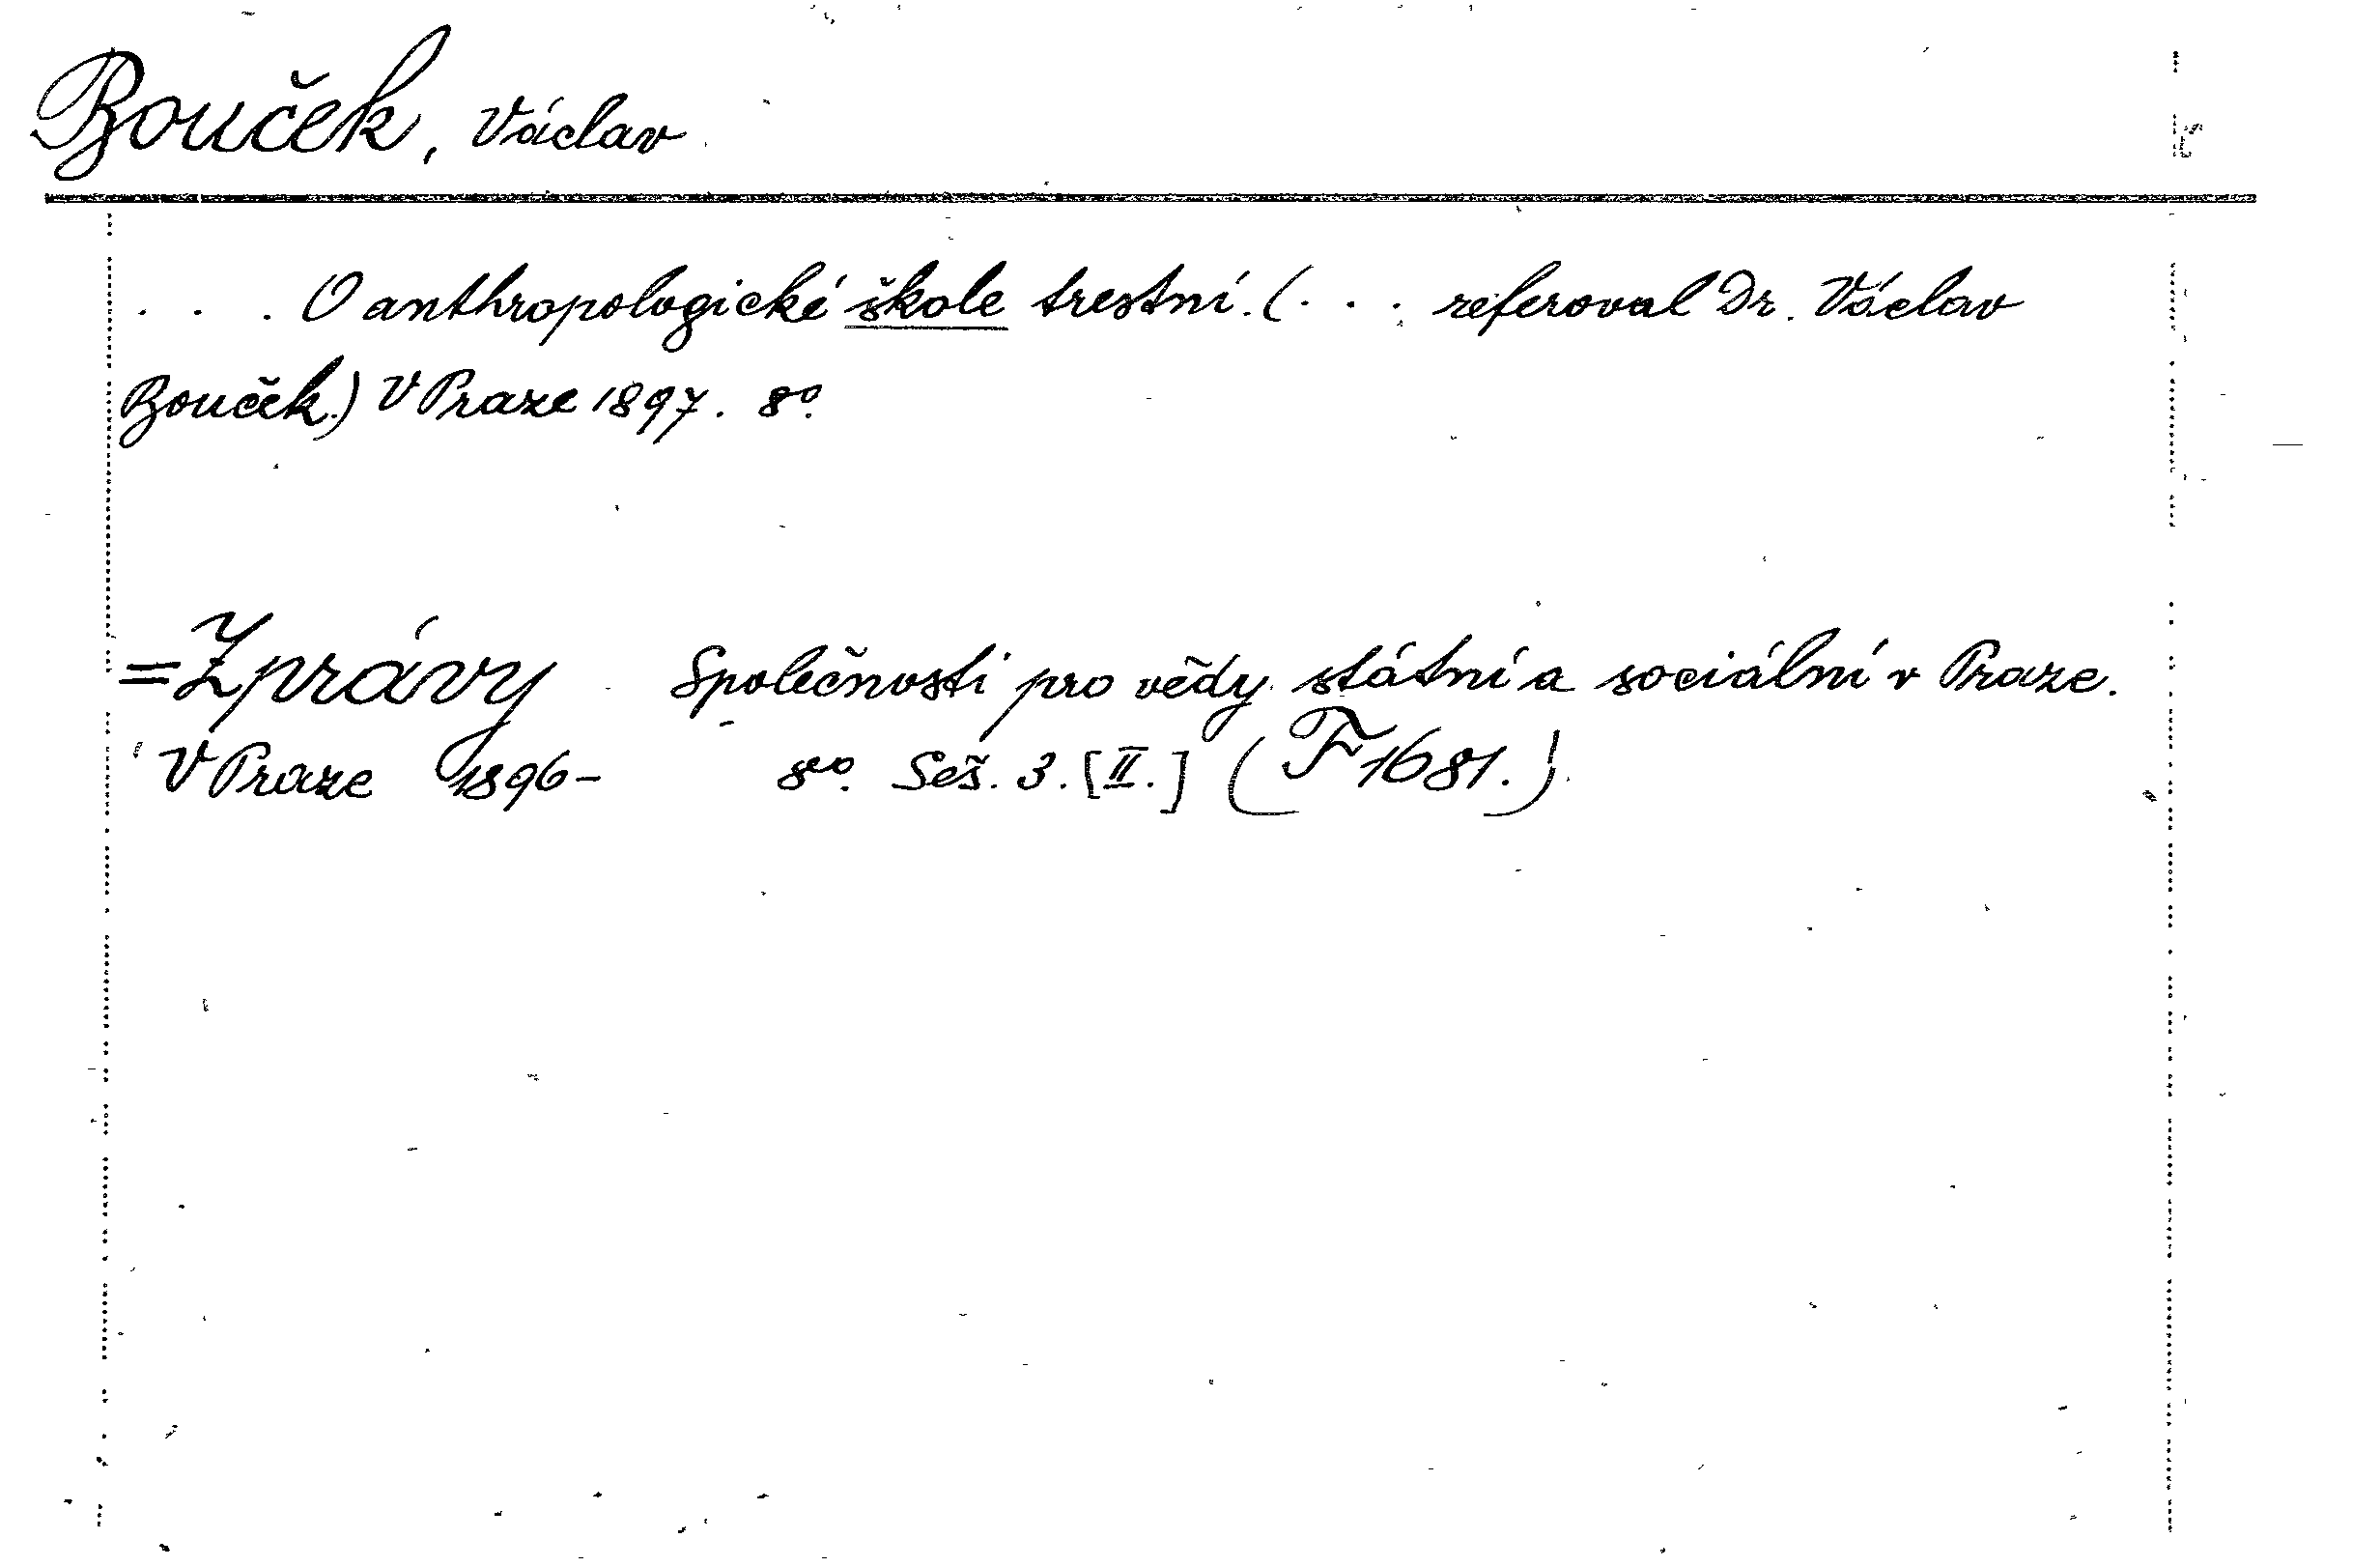 Bouček, Václav
. . . O anthropologické škole trestní. (. . . referoval Dr. Václav
Bouček.) V Praze 1897. 8º.
=Zprávy Společnosti pro vědy státní a sociální v Praze.
V Praze 1896- 8º. Seš. 3. [II.] (F 1681.)